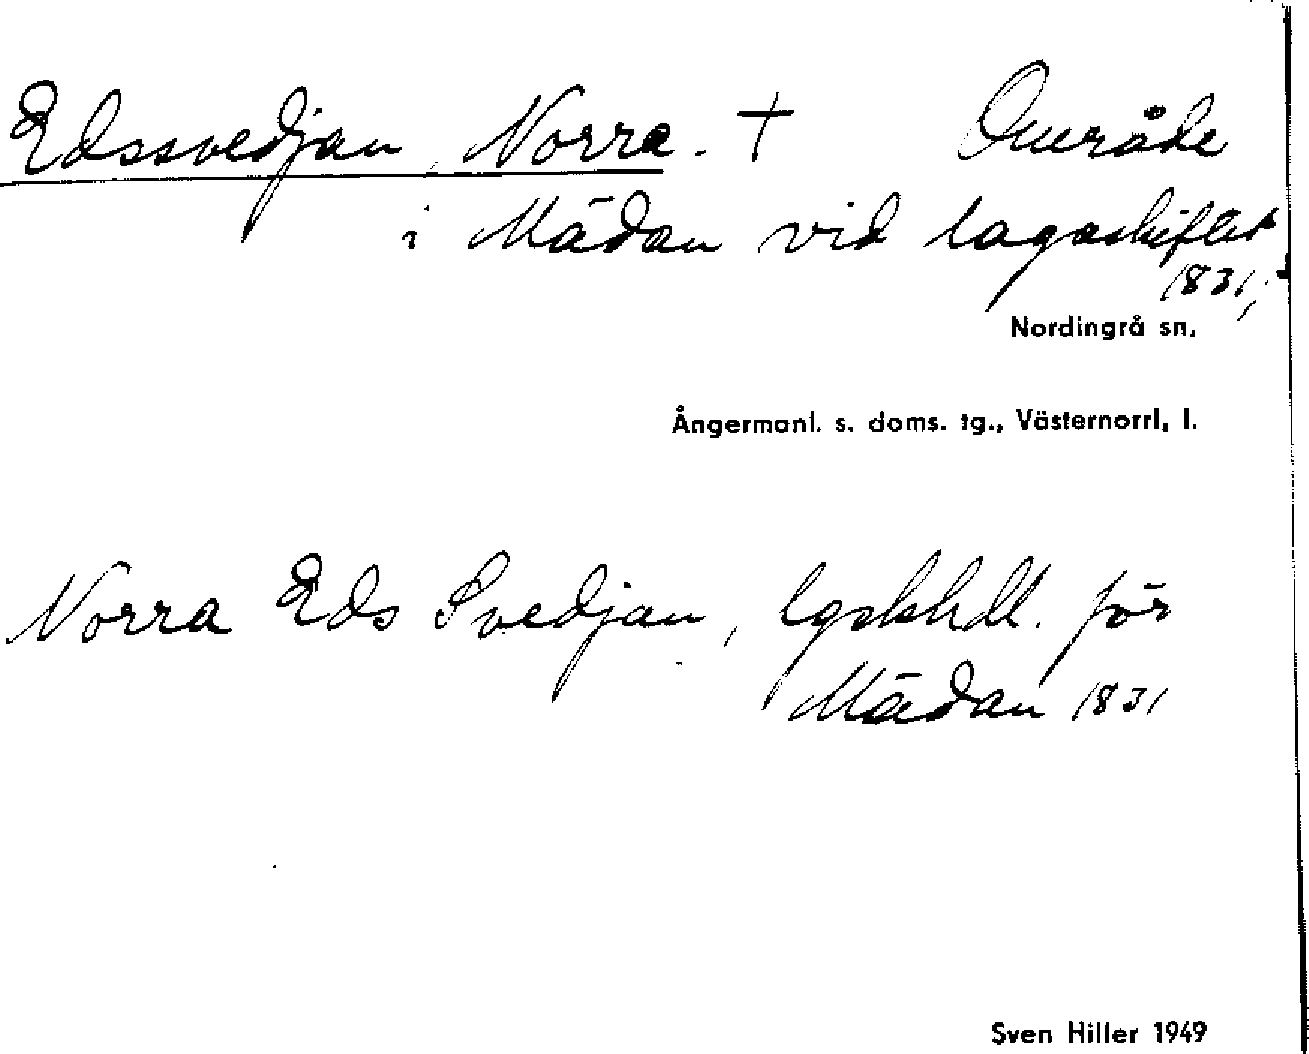 Edssvedjan, Norra. † Område
i Mädan vid lagaskiftet
1831;
Nordingrå sn.
Ångermanl. s. doms. tg., Västernorrl. l.
Norra Eds Svedjan, lgskhdl. för
Mädan 1831
Sven Hiller 1949